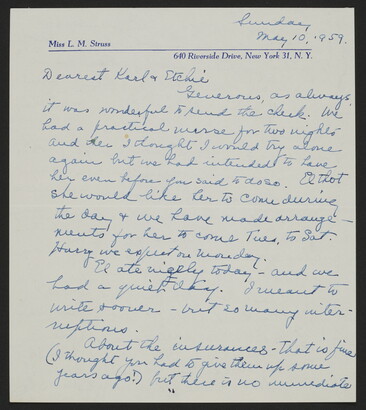 Sunday
May 10, 1959.
Miss L. M. Struss
640 Riverside Drive, New York 31, N. Y.
Dearest Karl & Ethie
Generous, as always,
it was wonderful to send the check. We
had a practical nurse for two nights
and then I thought I would try alone
again but we had intended to have
her even before you said to do so. El thot
she would like her to come during
the day & we have made arrange-
ments for her to come Tues, to Sat.
Harry we expect on Monday.
El ate nicely today - and we
had a quiet day. I meant to
write sooner - but so many inter-
ruptions.
About the insurances - that is fine
(I thought you had to give them up some
years ago!) but there is no immediate